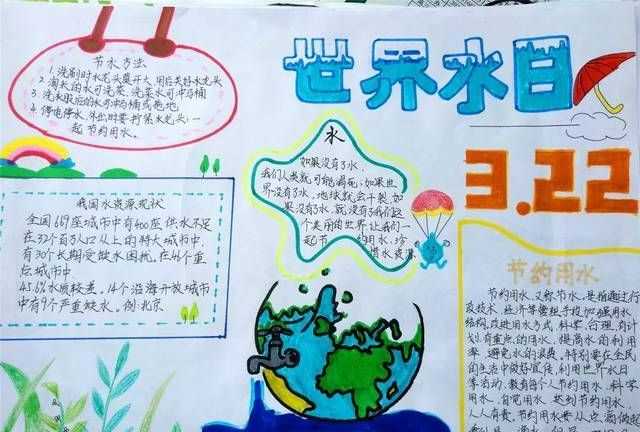 世界水日
3.22
节水方法
1.洗刷时水龙头莫开大,用后关好水龙头
2.淘米的水可洗菜,洗菜水可冲马桶
3.洗衣服后的水可冲马桶或拖地
4.停电停水,外出时要拧紧水龙头,一
起节约用水。
我国水资源现状
全国669座城市中有400座供水不足
在32个百万人口以上的特大城市中,
有30个长期受缺水困扰,在46个重
点城市中
45.6%水质较差,14个沿海开放城市
中有9个严重缺水。例:北京
水
如果没有了水,
我们人类就可能渴死;如果世
界没有了水,地球就会干裂;如
果没有了水,就没有了我们这
个美丽的世界,让我们一
起节约用水,珍
惜水资源
节约用水
节约用水,又称节水,是指通过行
政技术,经济等管理手段加强用水
结构,改进用水方式,科学、合理、有计
划、有重点的用水,提高水的利用
率,避免水的浪费。特别要在全民
的生活中做好宣传,利用世界水日
等活动,教育每个人节约用水,科学
用水,自觉用水,达到节约用水,
人人有责。节约用水要从点滴做起